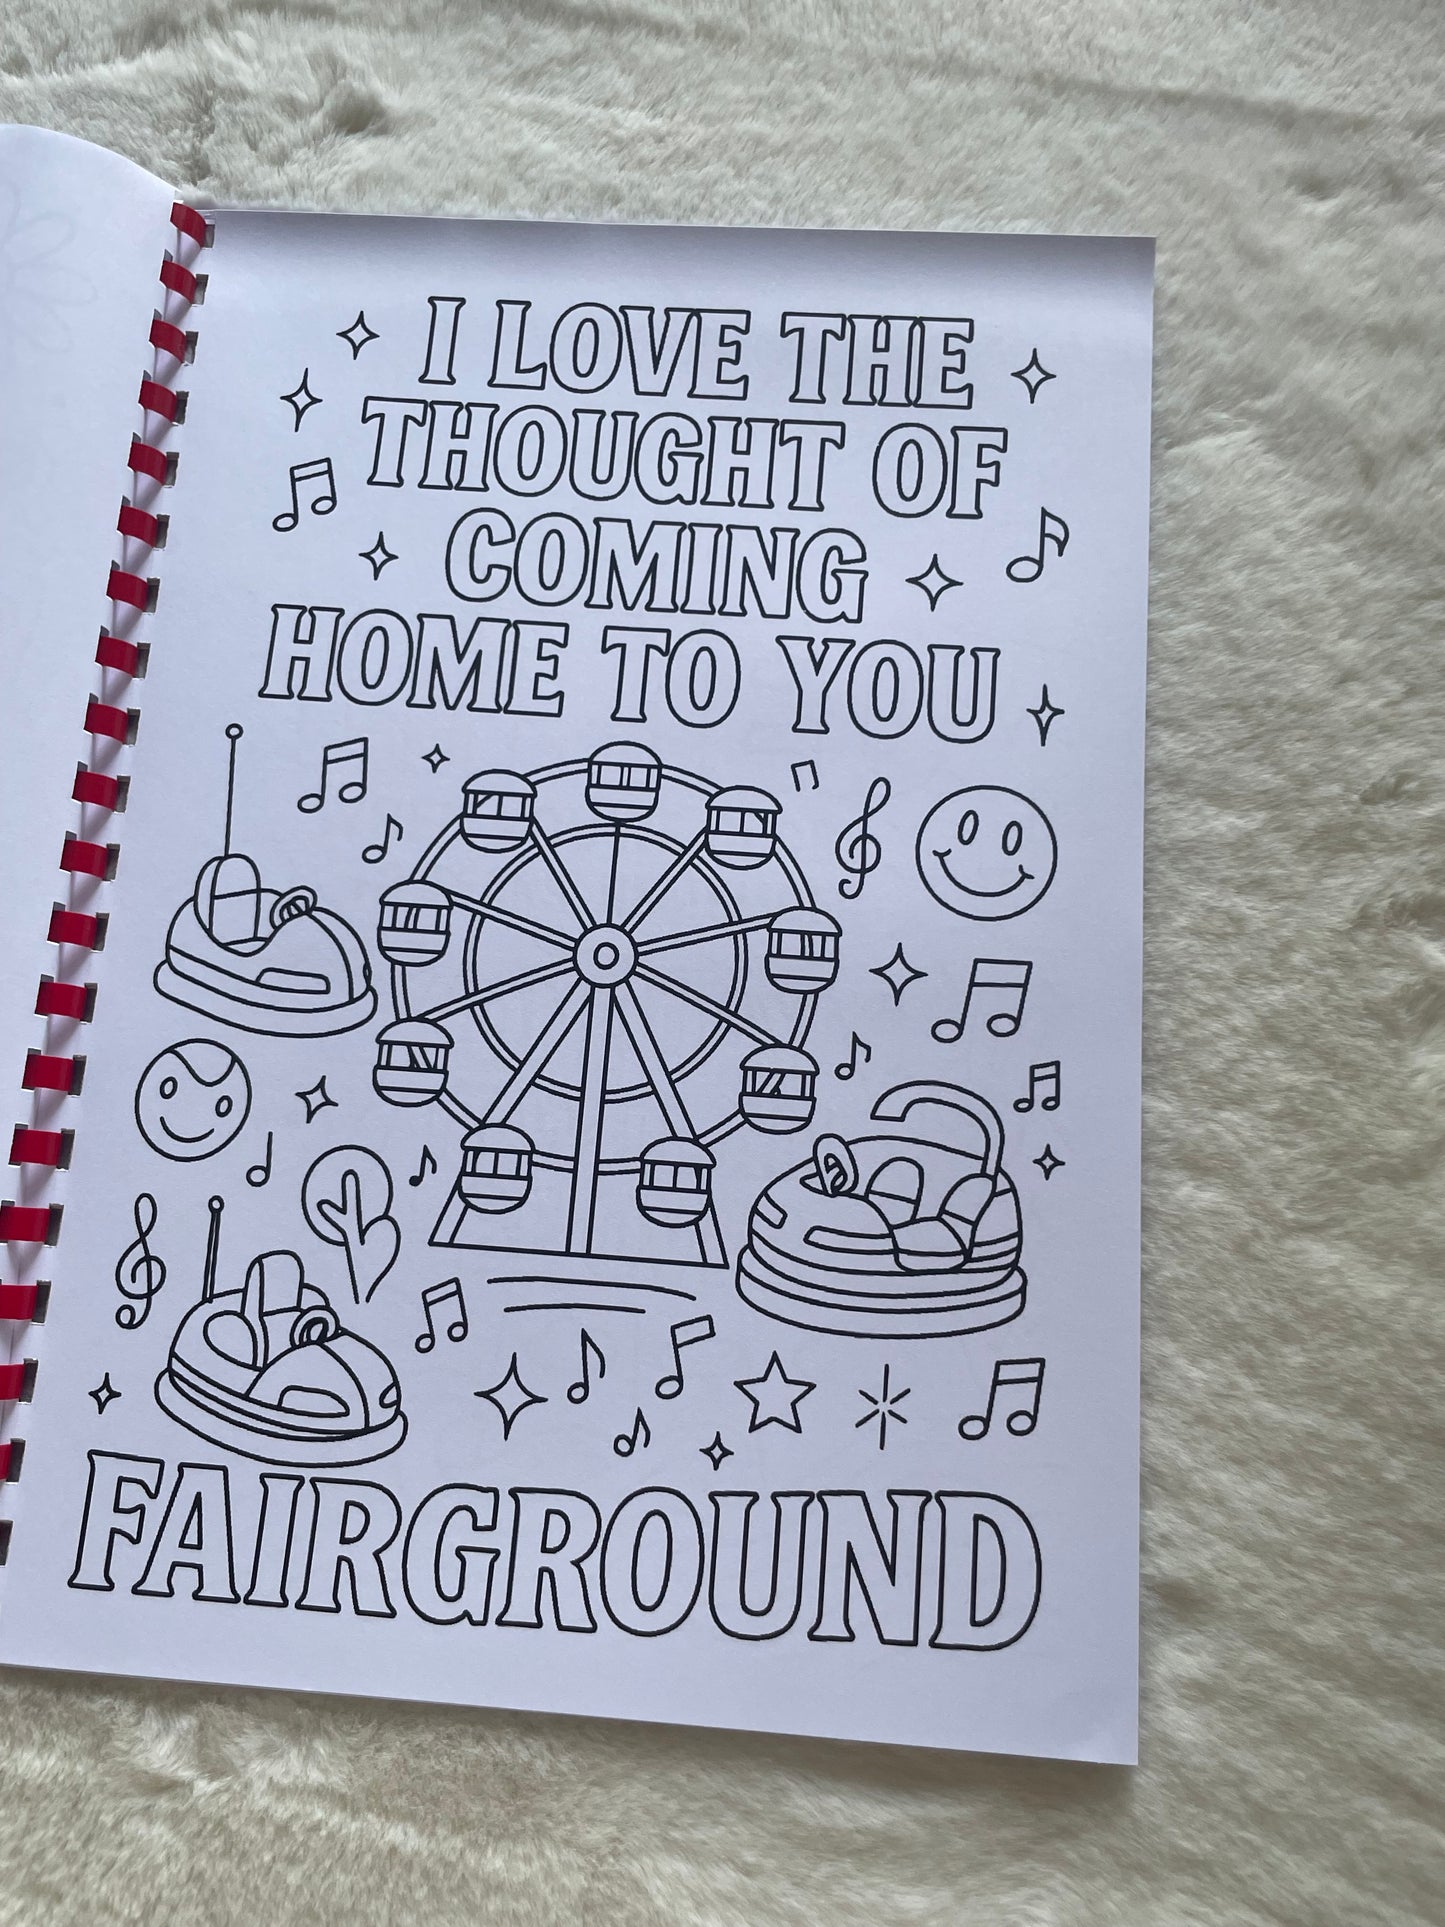 I LOVE THE
THOUGHT OF
COMING
HOME TO YOU
FAIRGROUND